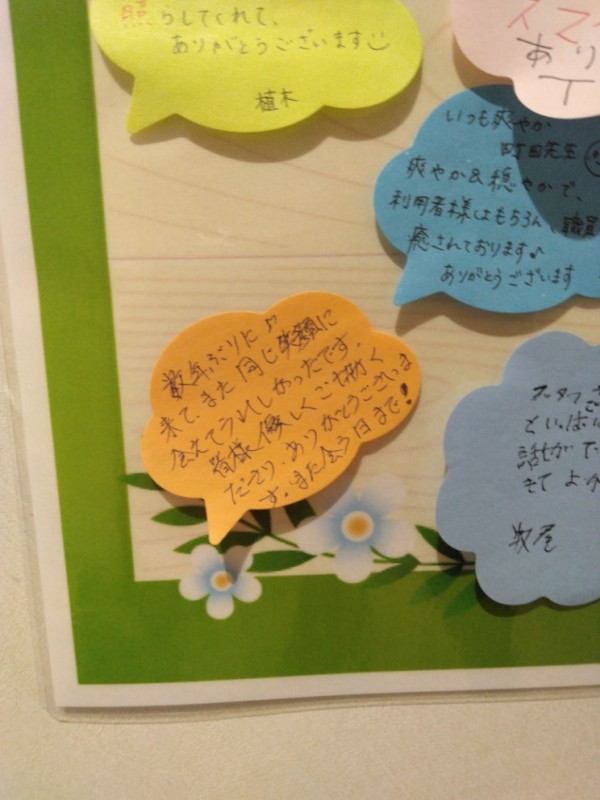 照らしてくれて、
ありがとうございます
植木
スマ
あり
いつも爽やか
町田先生
爽やか&穏やかで、
利用者様はもちろん、職員
癒されております♪
ありがとうございます
数年ぶりに♪
来て、また同じ笑顔に
会えてうれしかったです。
皆様優しくご接く
ださり、ありがとうございま
す。また会う日まで!
スタッフさ
といっぱい
話もができ
きてよか